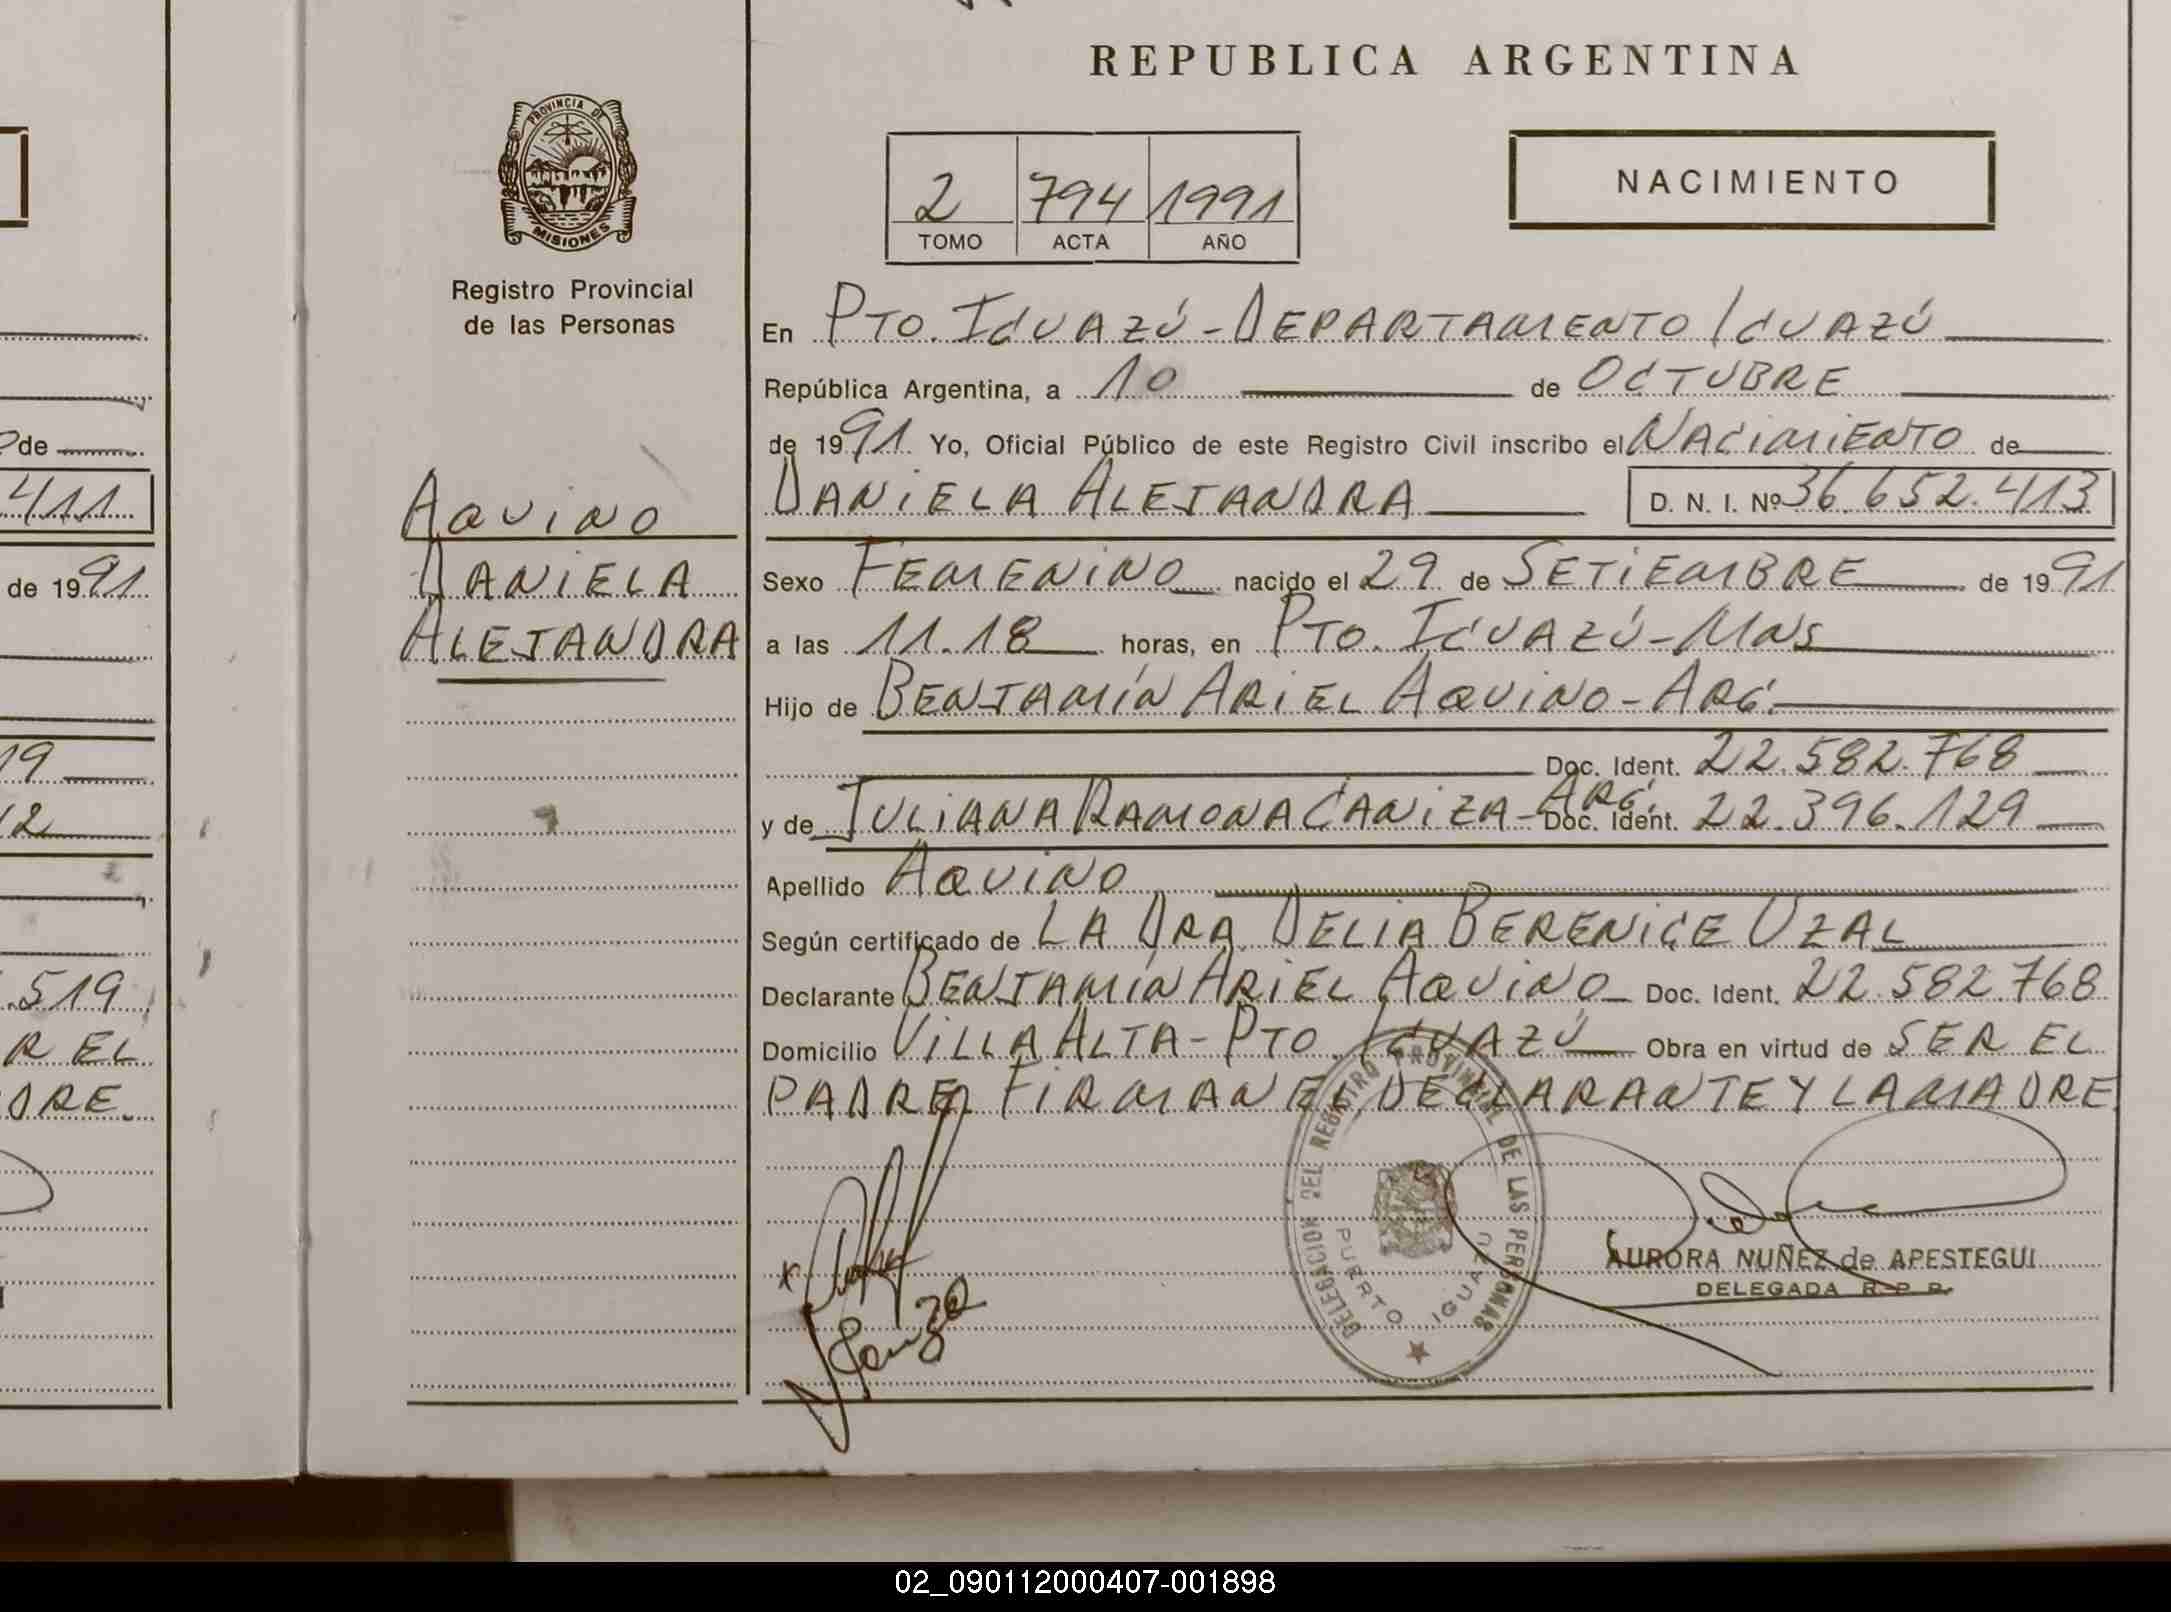 REPUBLICA ARGENTINA
PROVINCIA DE
MISIONES
Registro Provincial
de las Personas
2 794 1991
TOMO ACTA AÑO
NACIMIENTO
En PTO. IGUAZÚ - DEPARTAMENTO IGUAZÚ
República Argentina, a 10 de OCTUBRE
de 1991. Yo, Oficial Público de este Registro Civil inscribo el NACIMIENTO de
DANIELA ALEJANDRA D. N. I. Nº 36.652.413
AQUINO
DANIELA
ALEJANDRA
Sexo FEMENINO nacido el 29 de SETIEMBRE de 1991
a las 11.18 horas, en PTO. IGUAZÚ - MNS
Hijo de BENJAMÍN ARIEL AQUINO - ARG.
Doc. Ident. 22.582.768
y de JULIANA RAMONA CANIZA - ARG. Doc. Ident. 22.396.129
Apellido AQUINO
Según certificado de LA DRA. DELIA BERENICE UZAL
Declarante BENJAMÍN ARIEL AQUINO Doc. Ident. 22.582.768
Domicilio VILLA ALTA - PTO. IGUAZÚ Obra en virtud de SER EL
PADRE. FIRMAN EL DECLARANTE Y LA MADRE.
DELEGACION DEL REGISTRO PROVINCIAL DE LAS PERSONAS
PUERTO IGUAZU
AURORA NUÑEZ de APESTEGUI
DELEGADA R. P. P.
de
411
de 1991.
19
12
.519
R EL
DRE.
02_090112000407-001898